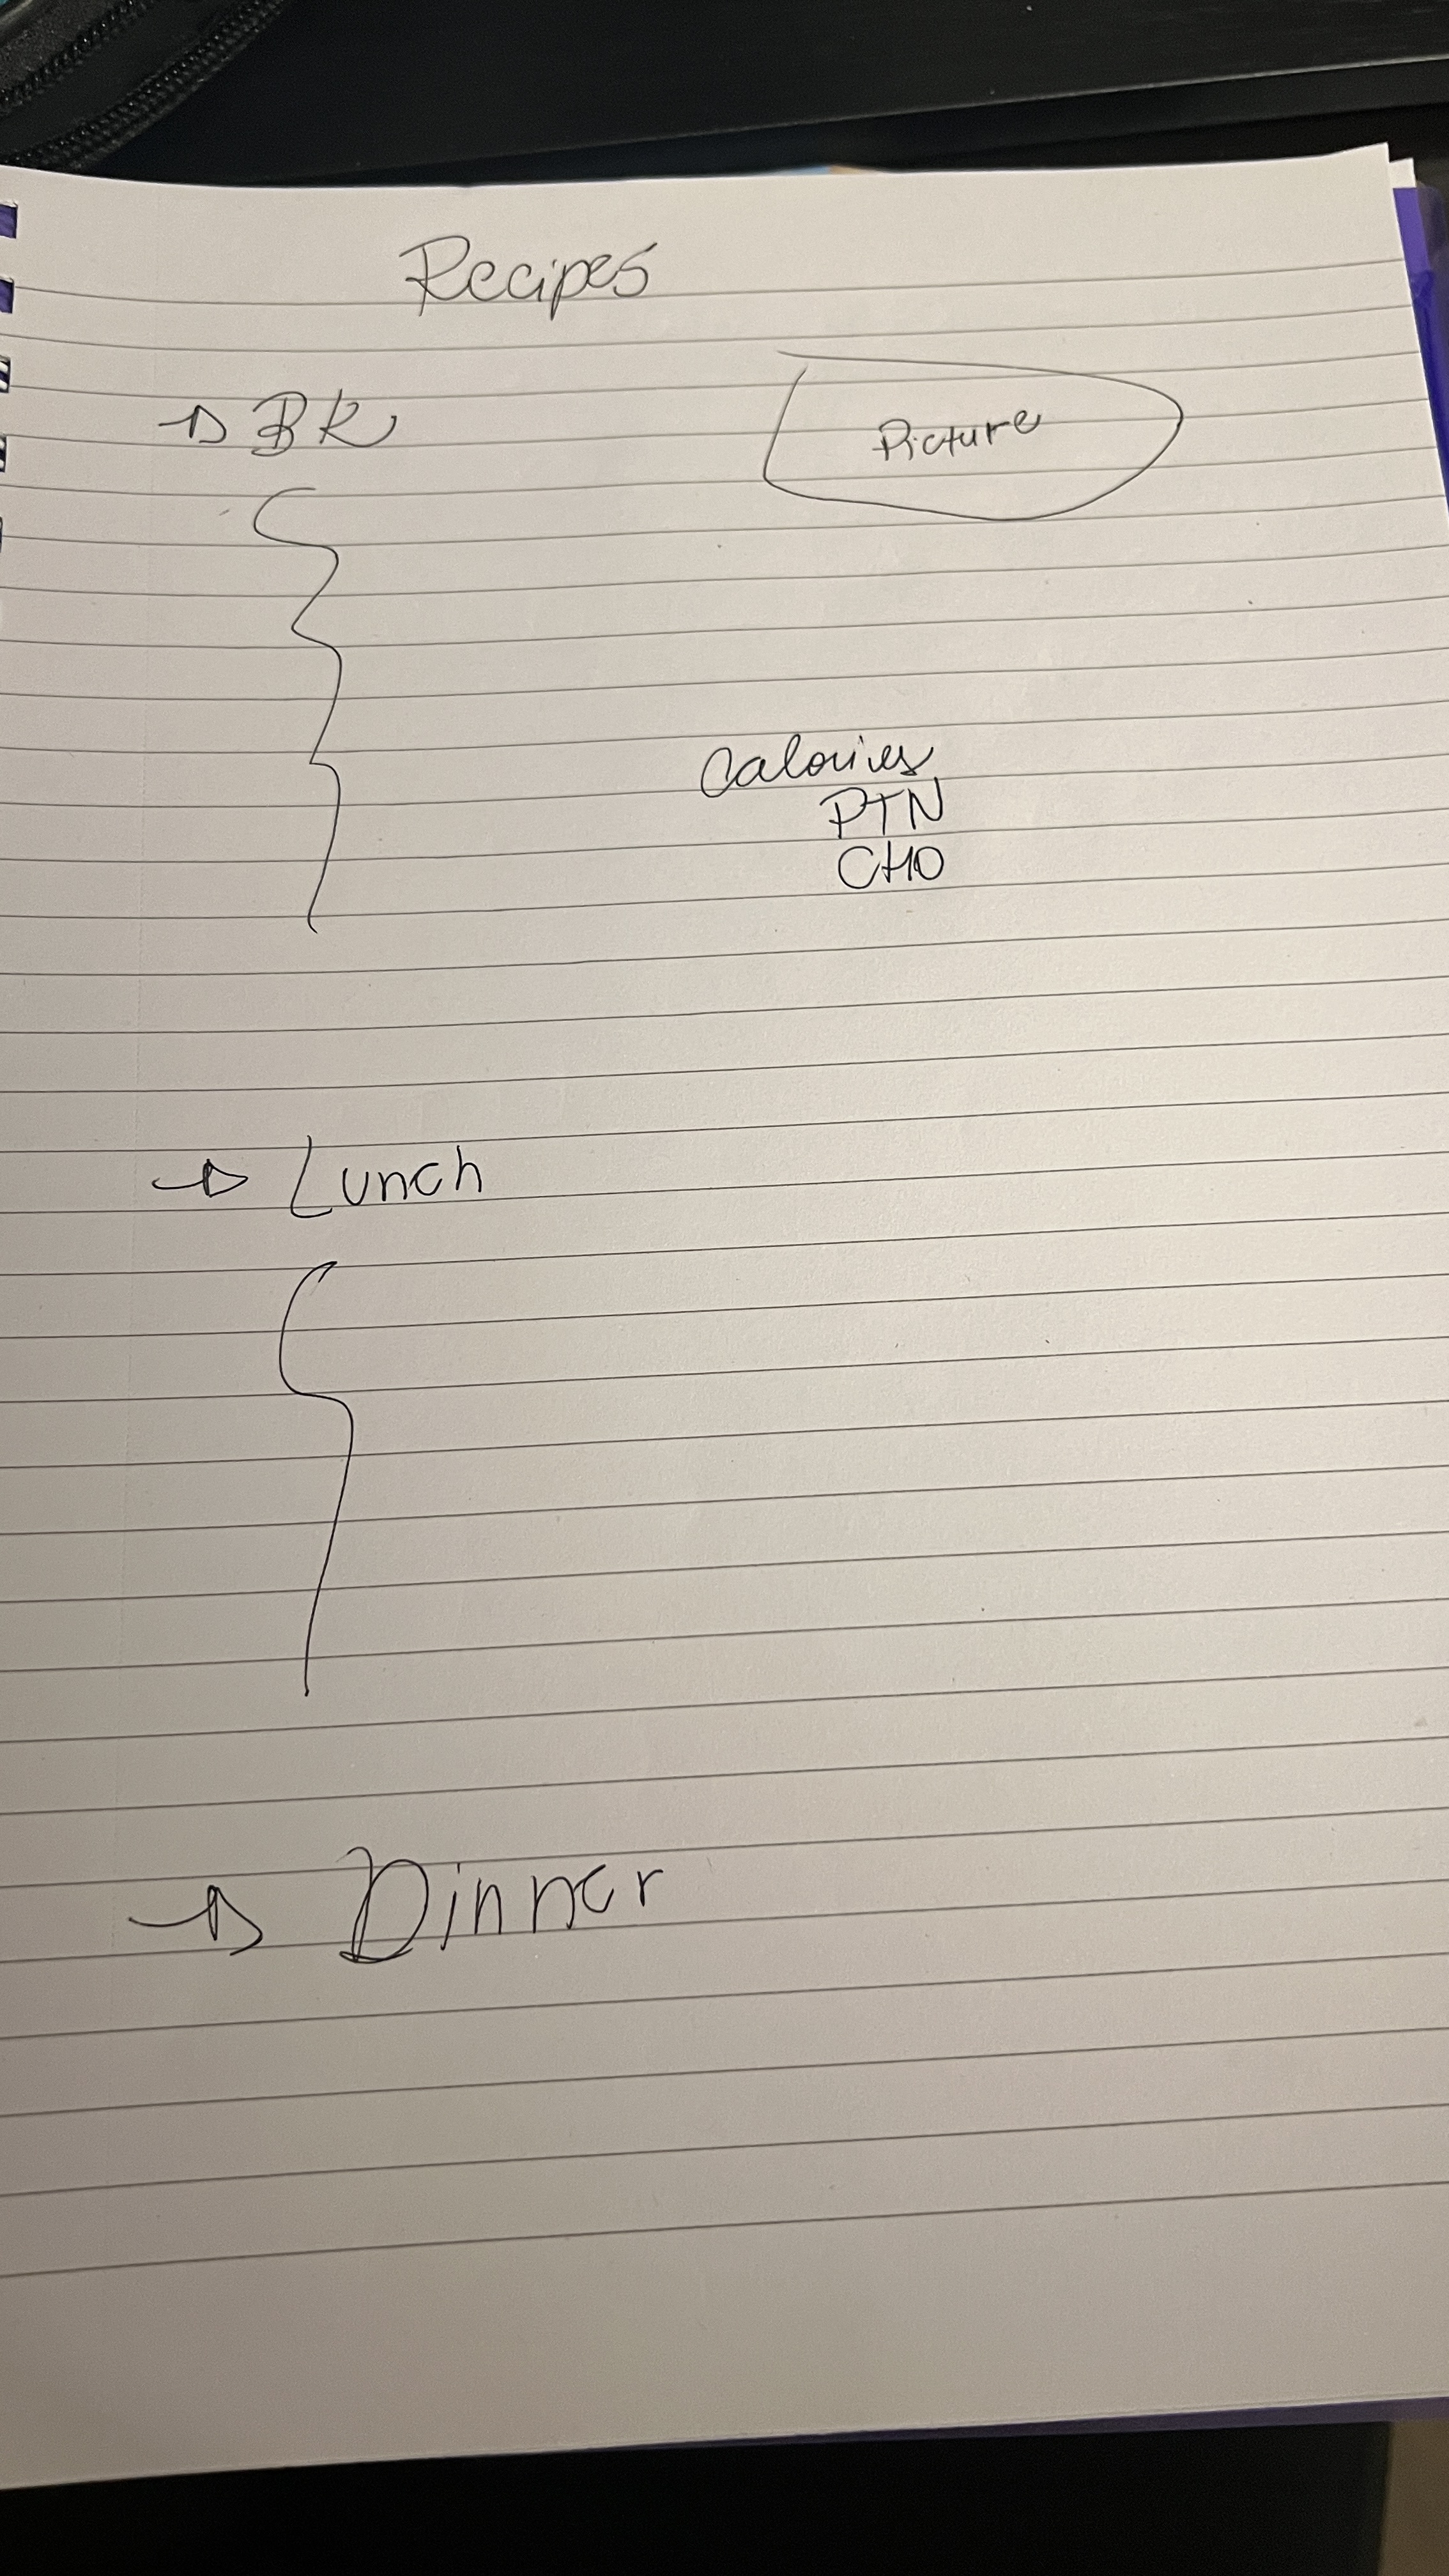 Recipes
→ BK
Picture
Calories
PTN
CHO
→ Lunch
→ Dinner